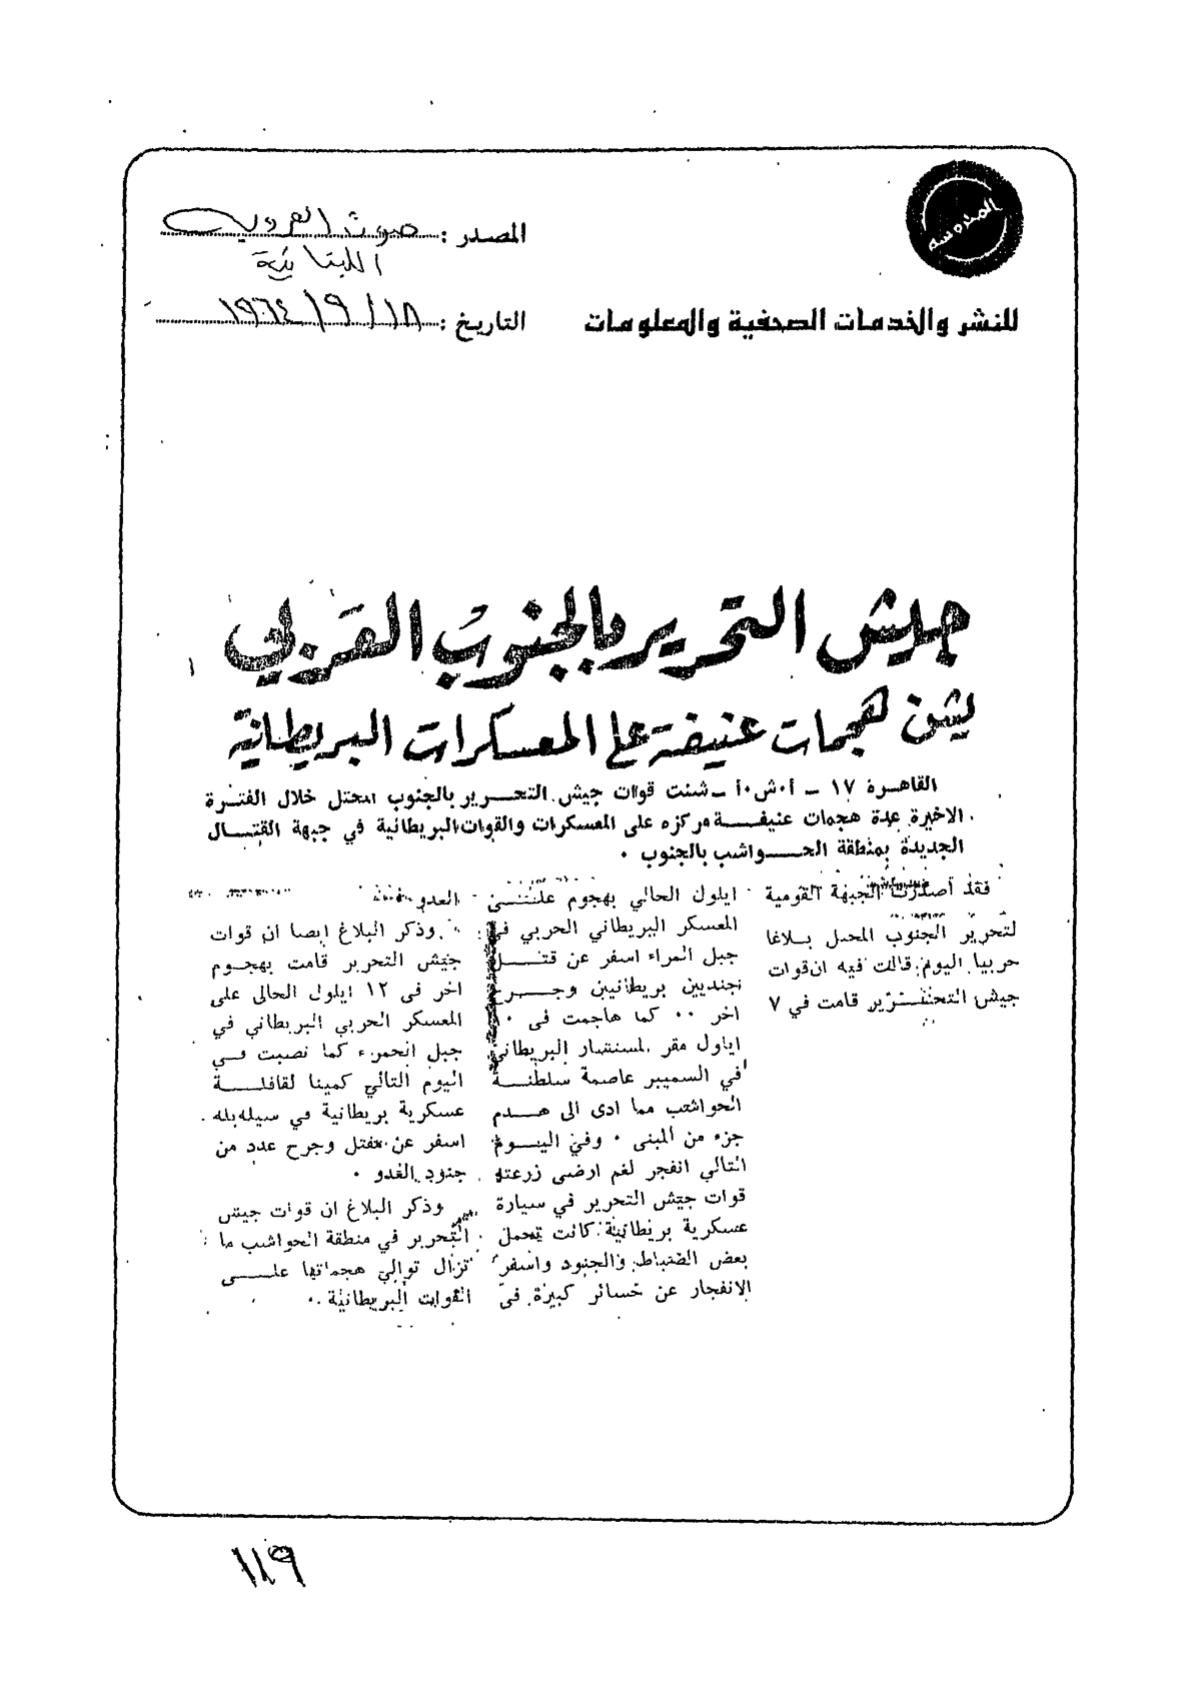 المدوسه
المصدر : صوت العروبة
اللبنانية
للنشر والخدمات الصحفية والمعلومات
التاريخ : ١٨ / ٩ / ١٩٦٤
جيش التحرير بالجنوب العربي
يشن هجمات عنيفة على المعسكرات البريطانية
القاهرة ١٧ - أ٠ش٠أ - شنت قوات جيش التحرير بالجنوب المحتل خلال الفترة
الاخيرة عدة هجمات عنيفة مركزه على المعسكرات والقوات البريطانية في جبهة القتال
الجديدة بمنطقة الحواشب بالجنوب ٠
فقد أصدرت الجبهة القومية
لتحرير الجنوب المحتل بلاغا
حربيا اليوم قالت فيه ان قوات
جيش التحرير قامت في ٧
ايلول الحالي بهجوم على
المعسكر البريطاني الحربي في
جبل المراء اسفر عن قتل
جنديين بريطانيين وجرح
اخر ٠٠ كما هاجمت فى
ايلول مقر المستشار البريطاني
في السمير عاصمة سلطنة
الحواشب مما ادى الى هدم
جزء من المبنى ٠ وفي اليوم
التالي انفجر لغم ارضى زرعته
قوات جيش التحرير في سيارة
عسكرية بريطانية كانت تحمل
بعض الضباط والجنود واسفر
الانفجار عن خسائر كبيرة فى
العدو
وذكر البلاغ ايضا ان قوات
جيش التحرير قامت بهجوم
اخر فى ١٢ ايلول الحالى على
المعسكر الحربي البريطاني في
جبل الحمراء كما نصبت في
اليوم التالي كمينا لقافلة
عسكرية بريطانية في سيله بله
اسفر عن مقتل وجرح عدد من
جنود العدو ٠
وذكر البلاغ ان قوات جيش
التحرير في منطقة الحواشب ما
تزال توالي هجماتها على
القوات البريطانية ٠
١١٩